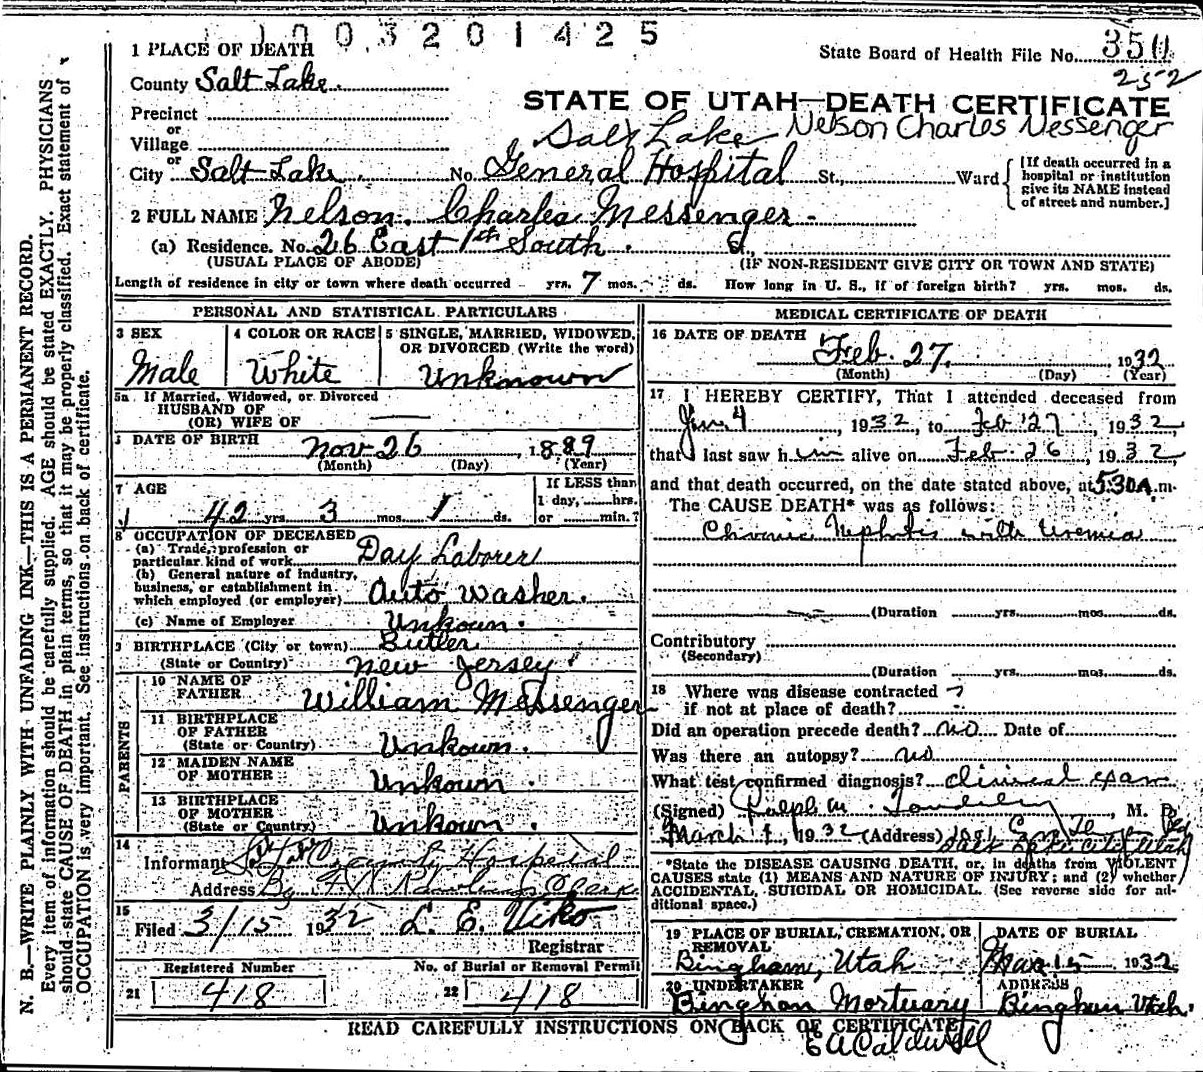 1003201425
1 PLACE OF DEATH
State Board of Health File No. 350
252
County Salt Lake.
STATE OF UTAH—DEATH CERTIFICATE
Precinct
or
Village
Salt Lake Nelson Charles Messenger
or
City Salt Lake. No. General Hospital St., Ward
[If death occurred in a hospital or institution give its NAME instead of street and number.]
2 FULL NAME Nelson. Charles Messenger -
(a) Residence. No. 26 East 1st South.
(USUAL PLACE OF ABODE) (IF NON-RESIDENT GIVE CITY OR TOWN AND STATE)
Length of residence in city or town where death occurred yrs. 7 mos. ds. How long in U. S., if of foreign birth? yrs. mos. ds.
PERSONAL AND STATISTICAL PARTICULARS
3 SEX
Male
4 COLOR OR RACE
White
5 SINGLE, MARRIED, WIDOWED, OR DIVORCED (Write the word)
Unknown
5a If Married, Widowed, or Divorced
HUSBAND OF
(OR) WIFE OF
DATE OF BIRTH Nov 26, 1889
(Month) (Day) (Year)
7 AGE
42 yrs. 3 mos. 1 ds.
If LESS than
1 day, hrs.
or min.?
8 OCCUPATION OF DECEASED
(a) Trade, profession or
particular kind of work Day Laborer
(b) General nature of industry,
business, or establishment in
which employed (or employer) Auto Washer.
(c) Name of Employer Unkoun.
9 BIRTHPLACE (City or town) Butler
(State or Country) New Jersey
PARENTS
10 NAME OF
FATHER William Messenger
11 BIRTHPLACE
OF FATHER
(State or Country) Unkown.
12 MAIDEN NAME
OF MOTHER Unkown
13 BIRTHPLACE
OF MOTHER
(State or Country) Unkown.
14
Informant County Hospital
Address By Clerk
15
Filed 3/15 1932 L. E. Viko
Registrar
Registered Number
21 418
No. of Burial or Removal Permit
22 418
MEDICAL CERTIFICATE OF DEATH
16 DATE OF DEATH
Feb. 27, 1932
(Month) (Day) (Year)
17 I HEREBY CERTIFY, That I attended deceased from
Jan. 4, 1932, to Feb 27, 1932,
that I last saw him alive on Feb. 26, 1932,
and that death occurred, on the date stated above, at 5:30 A.m.
The CAUSE DEATH* was as follows:
Chronic Nephritis with Uremia
(Duration yrs. mos. ds.
Contributory
(Secondary)
(Duration yrs. mos. ds.
18 Where was disease contracted
if not at place of death? ?
Did an operation precede death? no Date of
Was there an autopsy? no
What test confirmed diagnosis? clinical exam
(Signed) Ralph M., M. D.
March 1, 1932 (Address) Salt Lake City Utah
*State the DISEASE CAUSING DEATH, or, in deaths from VIOLENT
CAUSES state (1) MEANS AND NATURE OF INJURY; and (2) whether
ACCIDENTAL, SUICIDAL OR HOMICIDAL. (See reverse side for ad-
ditional space.)
19 PLACE OF BURIAL, CREMATION, OR
REMOVAL
Bingham, Utah
DATE OF BURIAL
Mar 15 1932
20 UNDERTAKER
Bingham Mortuary
ADDRESS
Bingham Utah.
READ CAREFULLY INSTRUCTIONS ON BACK OF CERTIFICATE
E A Caldwell
N. B.—WRITE PLAINLY WITH UNFADING INK—THIS IS A PERMANENT RECORD.
Every item of information should be carefully supplied. AGE should be stated EXACTLY. PHYSICIANS
should state CAUSE OF DEATH in plain terms, so that it may be properly classified. Exact statement of
OCCUPATION is very important. See instructions on back of certificate.